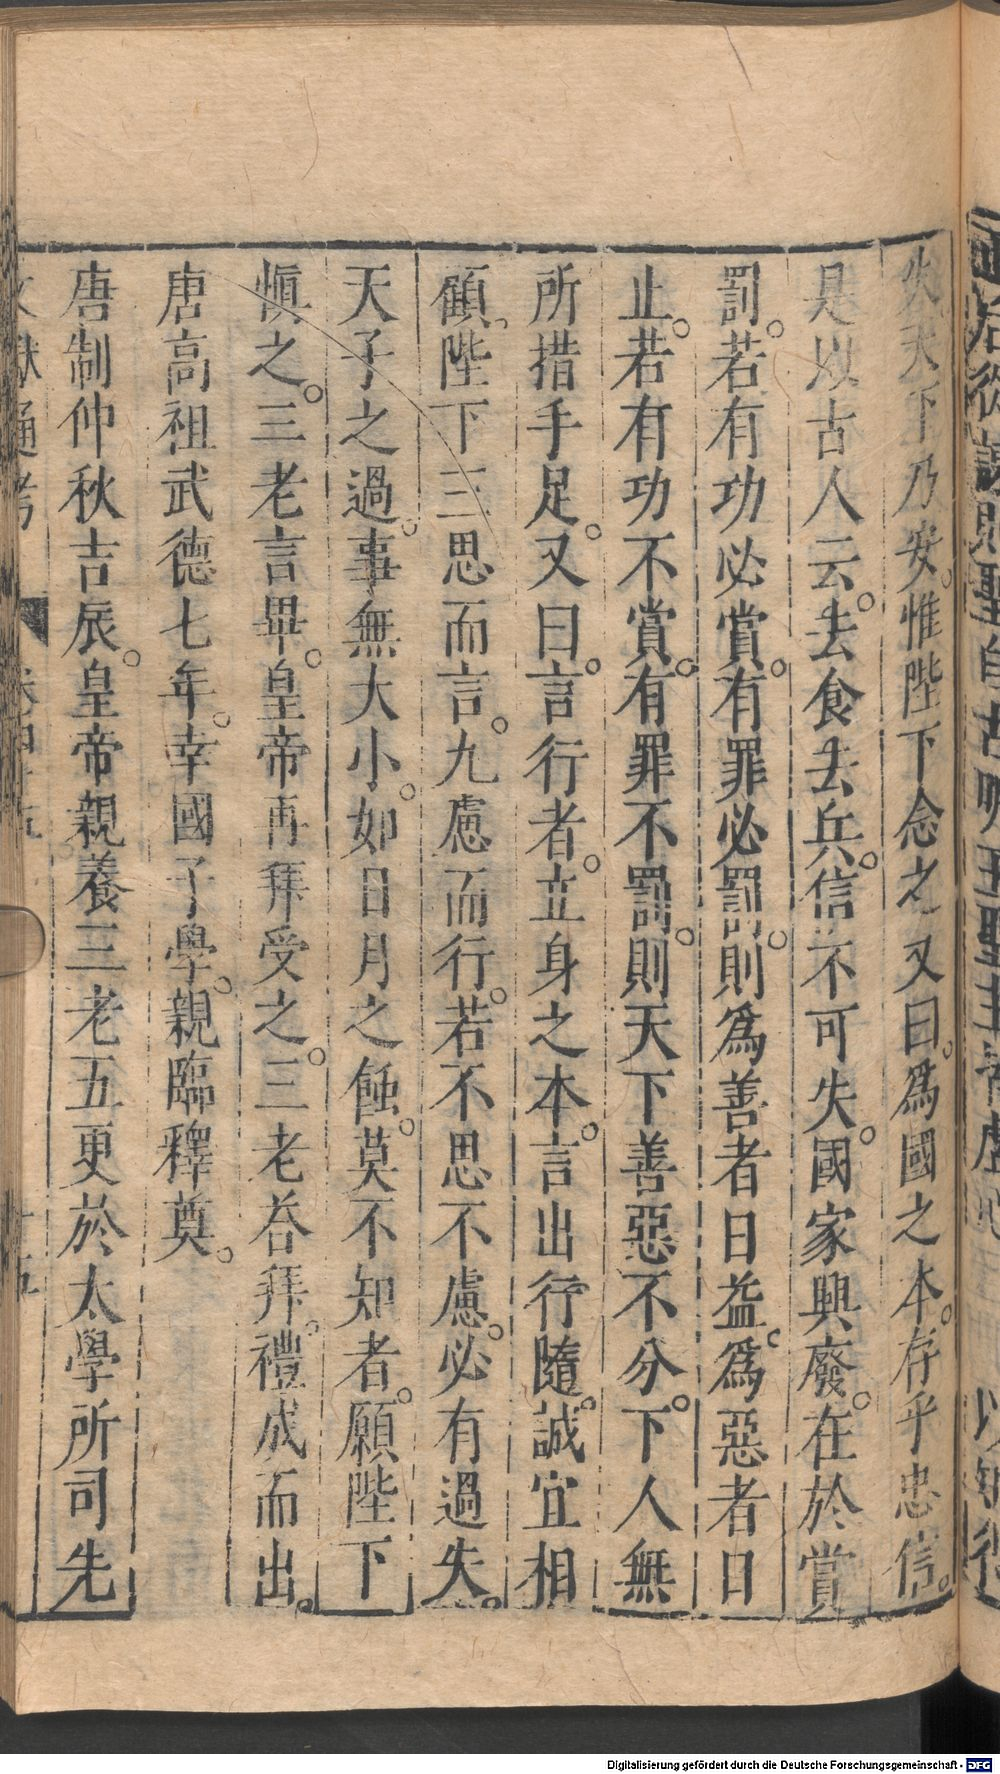 失天下乃安惟陛下念之又曰爲國之本存乎忠信
是以古人云去食去兵信不可失國家興廢在於賞
罰若有功必賞有罪必罰則爲善者日益爲惡者日
止若有功不賞有罪不罰則天下善惡不分下人無
所措手足又曰言行者立身之本言出行隨誠宜相
顧陛下三思而言九慮而行若不思不慮必有過失
天子之過事無大小如日月之蝕莫不知者願陛下
慎之三老言畢皇帝再拜受之三老荅拜禮成而出
唐高祖武德七年幸國子學親臨釋奠
唐制仲秋吉辰皇帝親養三老五更於太學所司先
文獻通考
Digitalisierung gefördert durch die Deutsche Forschungsgemeinschaft - DFG